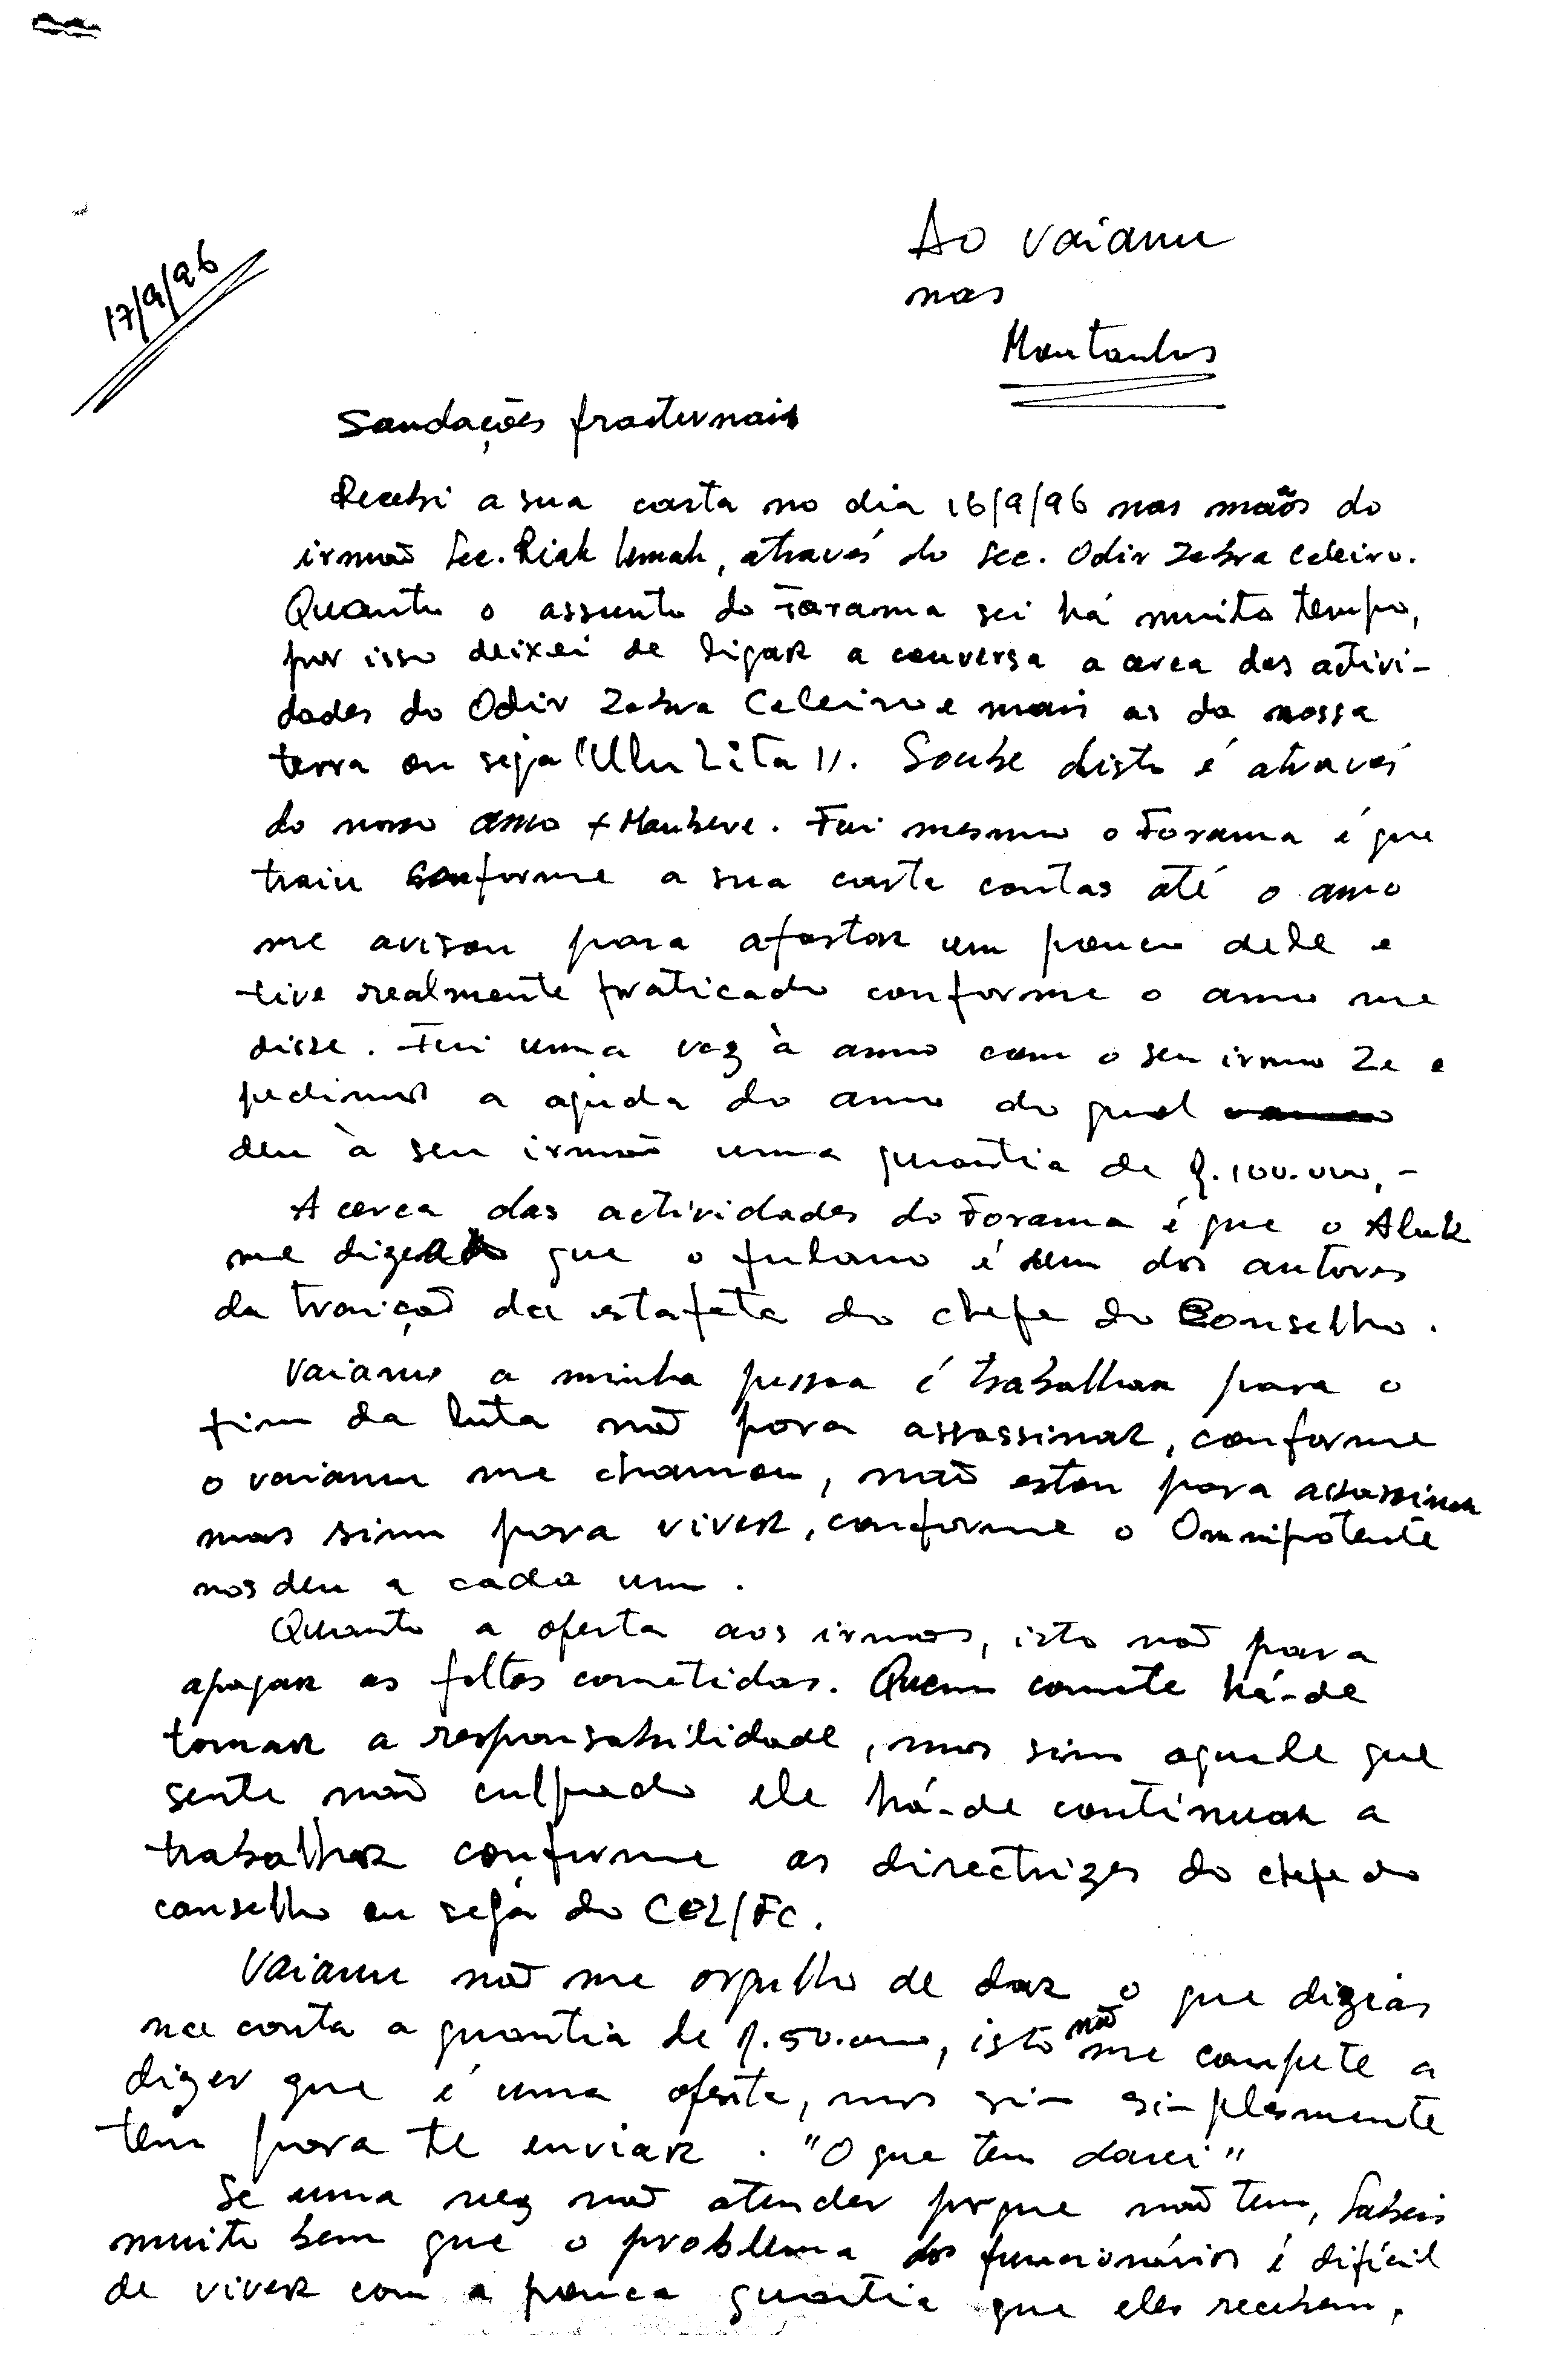 17/9/96
Ao Vaianu
nas
Montanhas
Saudações fraternais
Recebi a sua carta no dia 16/9/96 nas mãos do
irmão Sec. Riak Leman, através do Sec. Odir Zebra Celeiro.
Quanto o assunto do Forama sei há muito tempo,
por isso deixei de ligar a conversa a cerca das activi-
dades do Odir Zebra Celeiro e mais as da nossa
terra ou seja "Ulu Lita". Soube disto é através
do nosso amo + Maubere. Foi mesmo o Forama é que
traiu conforme a sua carta contas até o amo
me avisou para afastar um pouco dele e
tive realmente praticado conforme o amo me
disse. Fui uma vez à amo com o seu irmo Ze e
pedimos a ajuda do amo do qual
deu à seu irmão uma quantia de R. 100.000,-
Acerca das actividades do Forama é que o Aluk
me dize que o fulano é um dos autores
da traição da estafeta do chefe do Conselho.
Vaianu a minha pessoa é trabalhar para o
fim da luta não para assassinar, conforme
o vaianu me chamou, não estou para assassinar
mas sim para viver, conforme o Omnipotente
nos deu a cada um.
Quanto a oferta aos irmos, isto não para
apagar as faltas cometidas. Quem comete há-de
tomar a responsabilidade, mas sim aquele que
sente não culpado ele há-de continuar a
trabalhar conforme as directrizes do chefe do
conselho ou seja do CEL/FC.
Vaianu não me orgulho de dar o que dizeias
na conta a quantia de R. 50.000, isto não me compete a
dizer que é uma oferta, mas sim simplesmente
tem para te enviar. "O que tem darei"
Se uma vez não atender porque não tem, Sabeis
muito bem que o problema dos funcionários é difícil
de viver com a pouca quantia que eles recebem,